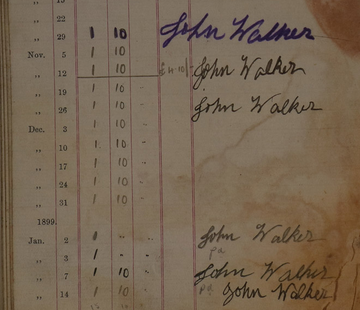 „ 22
„ 29 1 10 John Walker
Nov. 5 1 10
„ 12 1 10 John Walker
„ 19 1 10
„ 26 1 10 John Walker
Dec. 3 1 10
„ 10 1 10 -
„ 17 1 10 -
„ 24 1 10 -
„ 31 1 10 -
1899.
Jan. 2 1 - - John Walker
pa
„ 3 1 - -
„ 7 1 10 John Walker
„ 14 1 10 pa John Walker